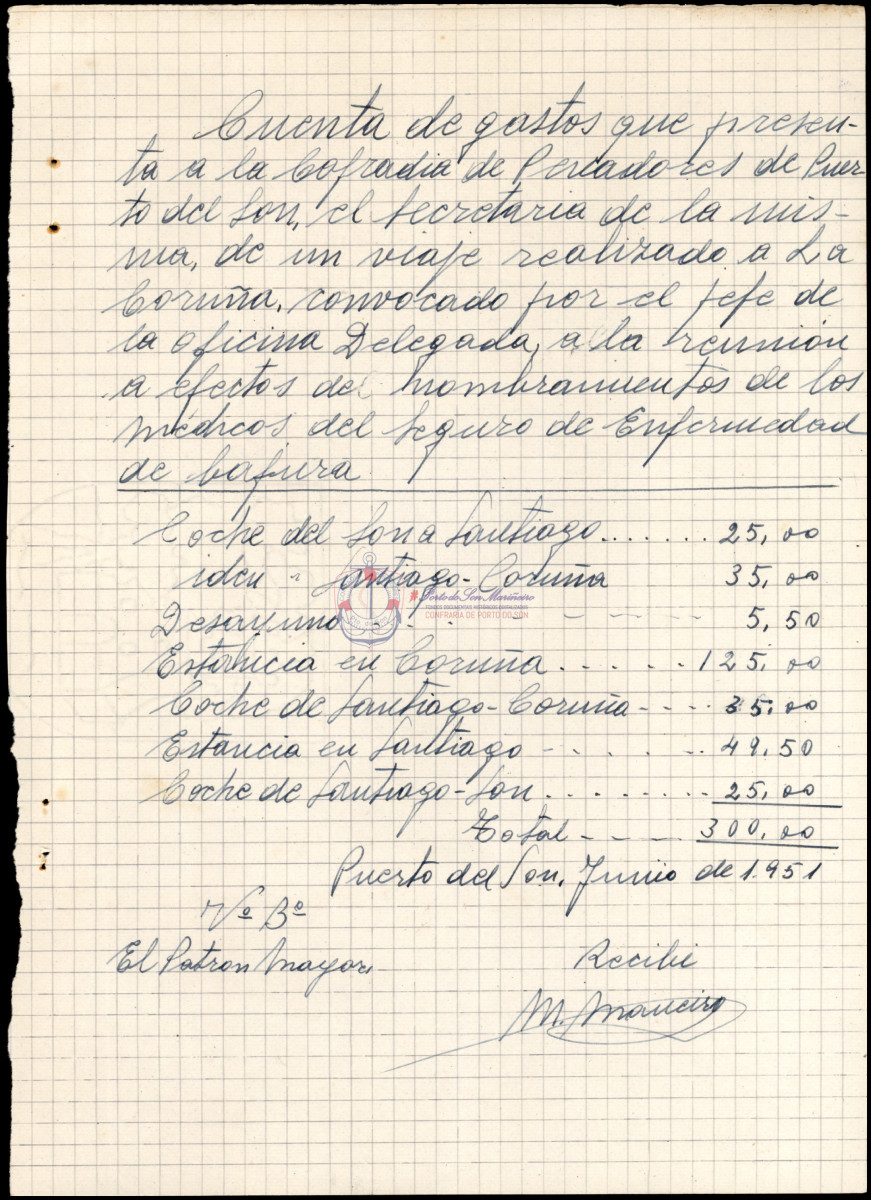 Cuenta de gastos que presen-
ta a la Cofradia de Pescadores de Puer-
to del Son, el Secretaria de la mis-
ma, de un viaje realizado a La
Coruña, convocado por el jefe de
la Oficina Delegada, a la reunión
a efectos del nombramientos de los
médicos del Seguro de Enfermedad
de bajura.
Coche del Son a Santiago....... 25,00
iden " Santiago-Coruña 35,00
#Porto do Son Mariñeiro
CONFRARIA DE PORTO DO SON
Desayuno . . . - - - - - 5,50
Estancia en Coruña. . . . . . 125,00
Coche de Santiago-Coruña---- 35,00
Estancia en Santiago - - . . -- 49,50
Coche de Santiago-Son......... 25,00
Total ---- 300,00
Puerto del Son, Junio de 1.951
Vº Bº
El Patron Mayor,
Recibi
M. Maneiro